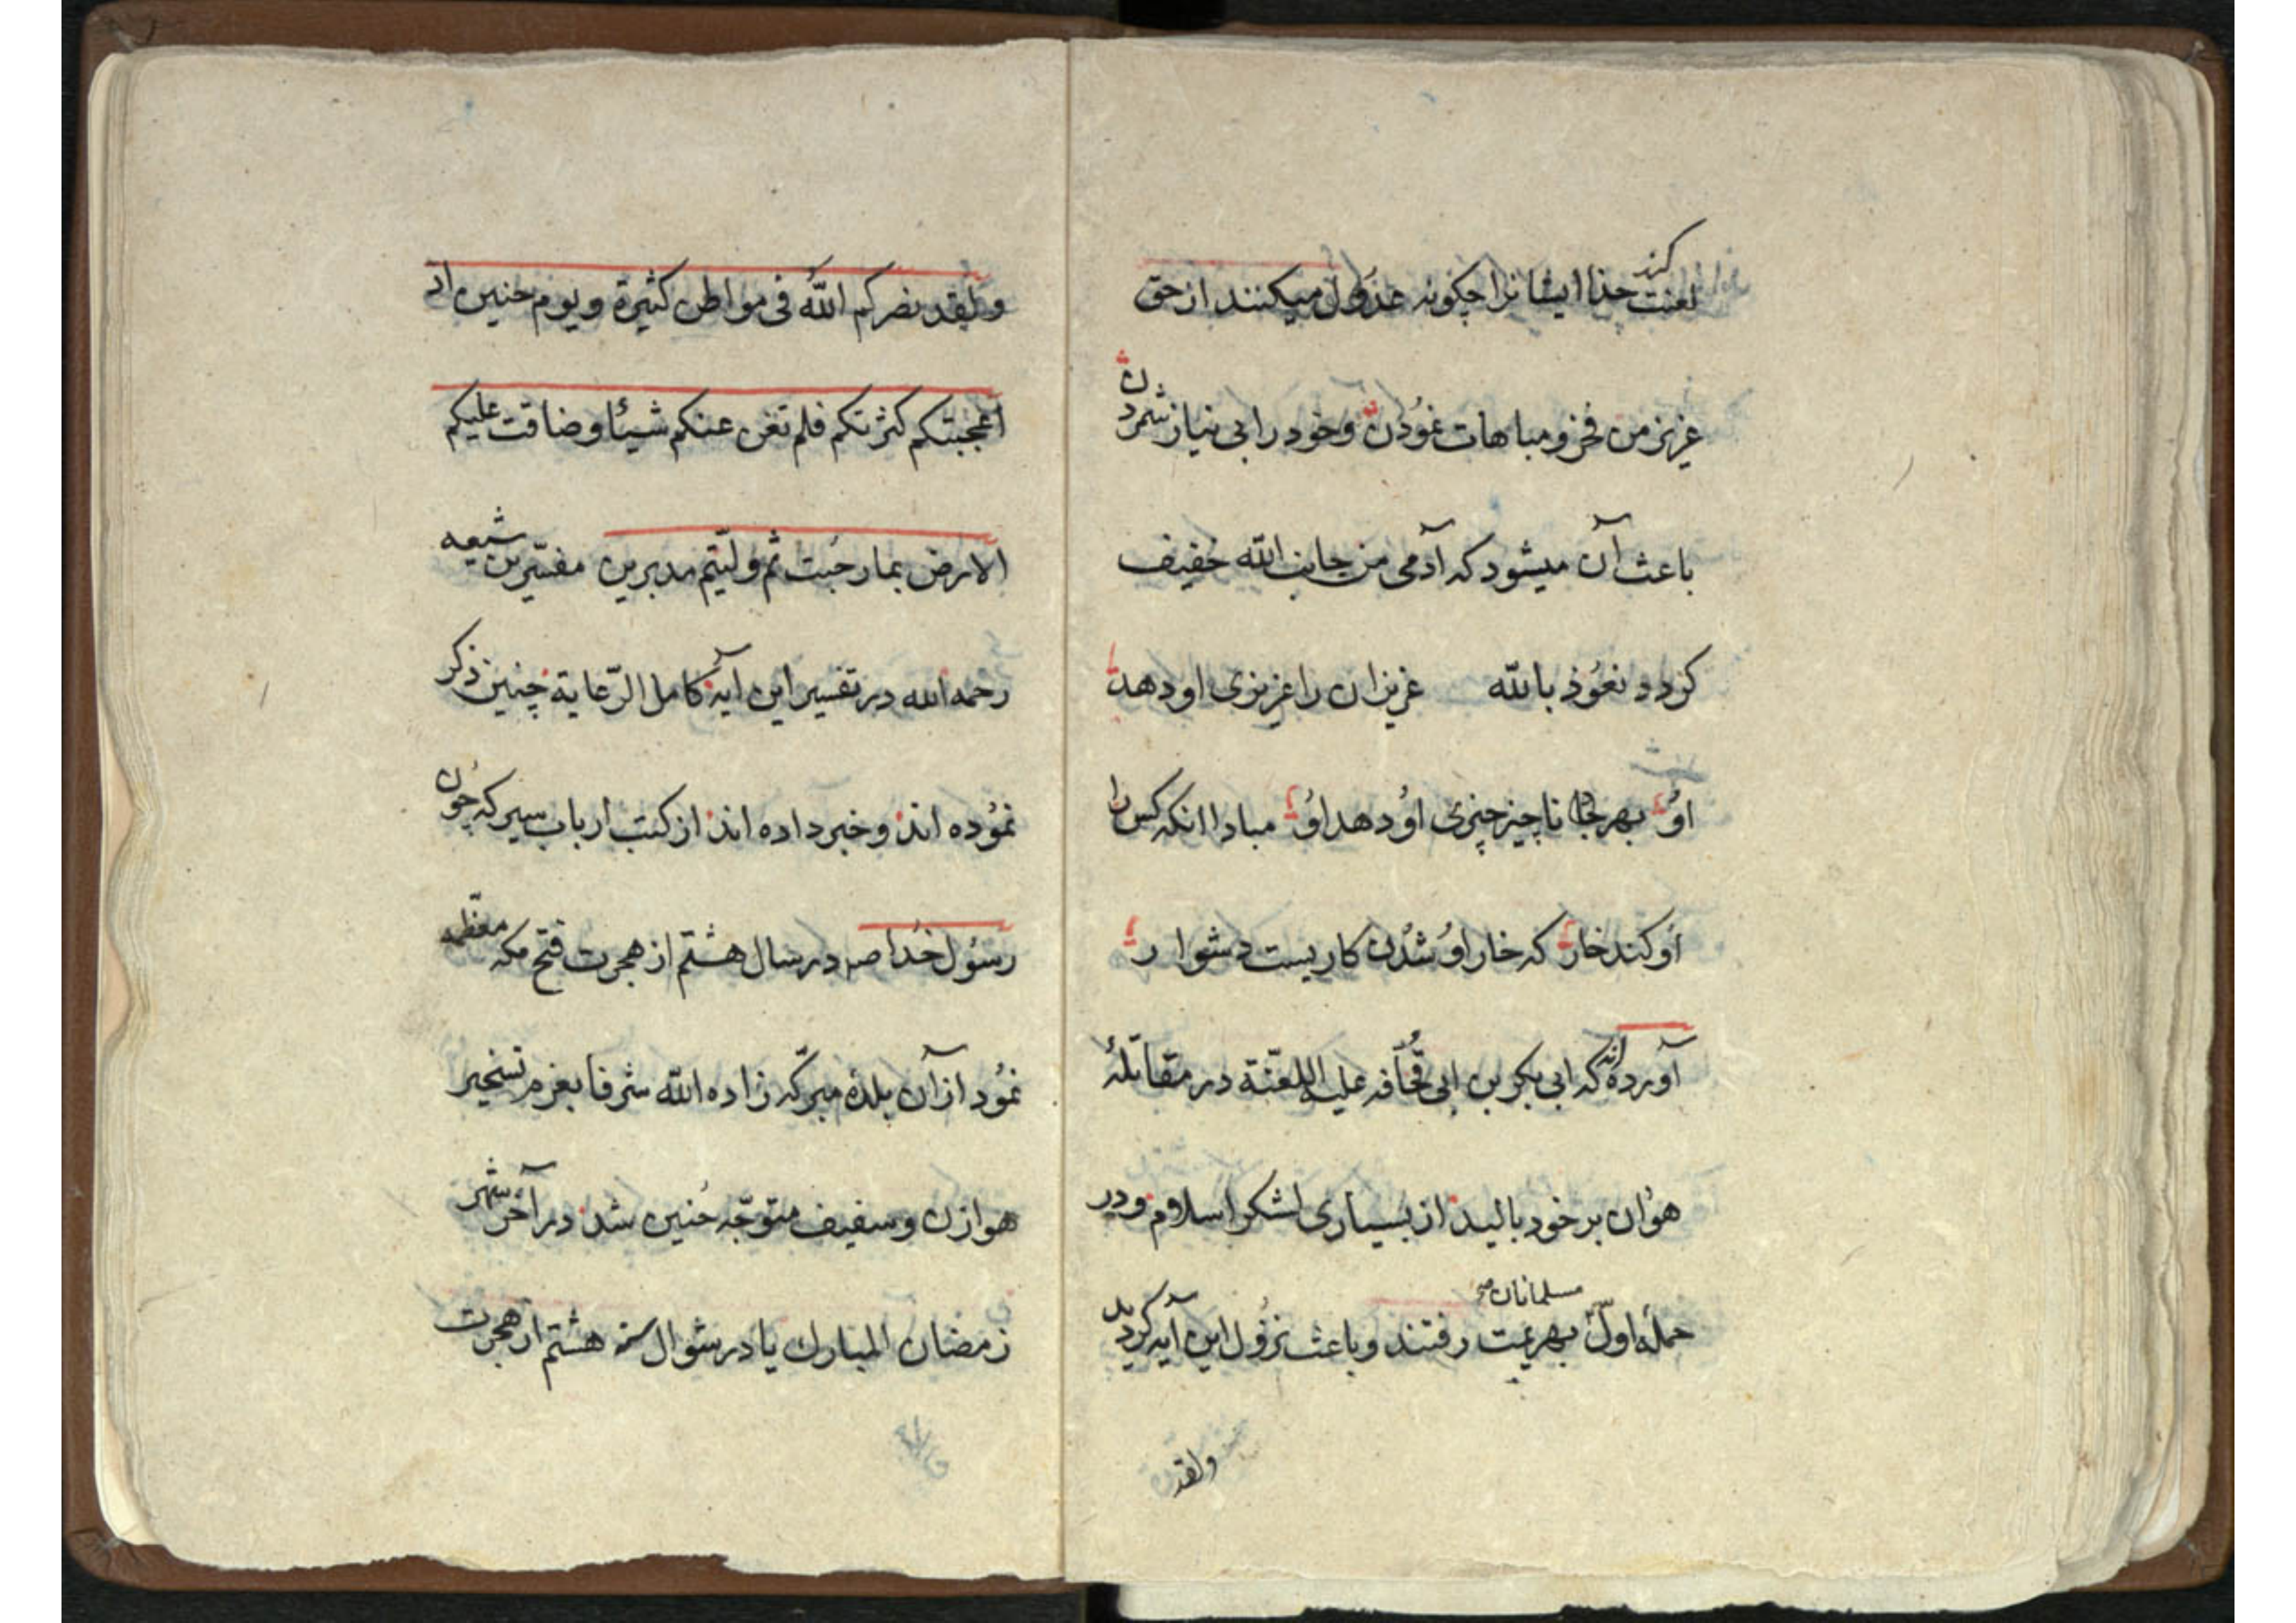 لعنت کند خذا ایشانرا چکونه عدول میکنند از حق
عزیز من فخر و مباهات نمودن و خود را بی نیاز شمردن
باعث آن میشود که آدمی من جانب الله خفیف
کردد نعوذ بالله عزیزان را عزیزی او دهد
او بهر جا ناچیز چیزی او دهد او مبادا انکه کس را
او کند خار که خار او شدن کاریست دشوار
آورده اند که ابی بکر بن ابی قحافه علیه اللعنة در مقاتلهٔ
هوان بر خود بالید از بسیاری لشکر اسلام و در
حملهٔ اول مسلمانان بهزیمت رفتند و باعث نزول این آیه کردید
ولقد
ولقد نصرکم الله فی مواطن کثیرة ویوم حنین اذ
اعجبتکم کثرتکم فلم تغن عنکم شیئا وضاقت علیکم
الارض بما رحبت ثم ولیتم مدبرین مفسرین شیعه
رحمه الله در تفسیر این آیهٔ کامل الرعایة چنین ذکر
نموده اند و خبر داده اند از کتب ارباب سیر که چون
رسول خدا صه در سال هشتم از هجرت فتح مکه معظمه
نمود از آن بلدهٔ مبرکه زاده الله شرفا بعزم تسخیر
هوازن و سفیف متوجه حنین شد در آخر شهر
رمضان المبارك یا در شوال سنه هشتم از هجرت